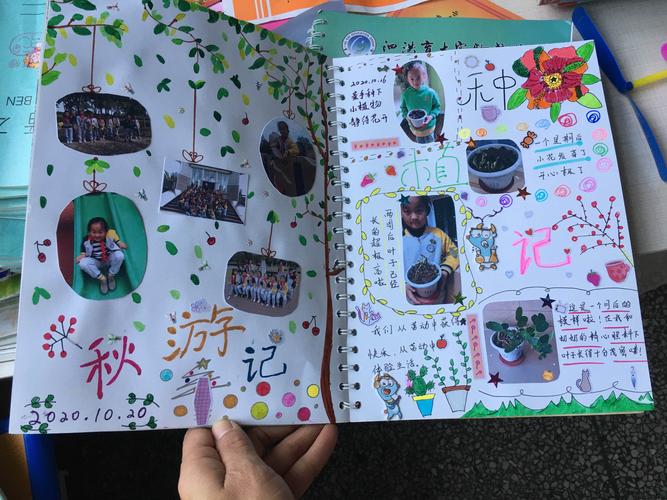 秋游记
2020.10.20
2020.10.16
亲手种下
小植物
静待花开
种
植
记
一个星期后
小花发芽了
开心极了
两周后叶子已经
长的超级高啦
我们从劳动中获得
快乐，从劳动中
体验生活。
这是一个月后的
模样啦！在我和
奶奶的精心照料下
叶子长得十分茂密喽！
BEN